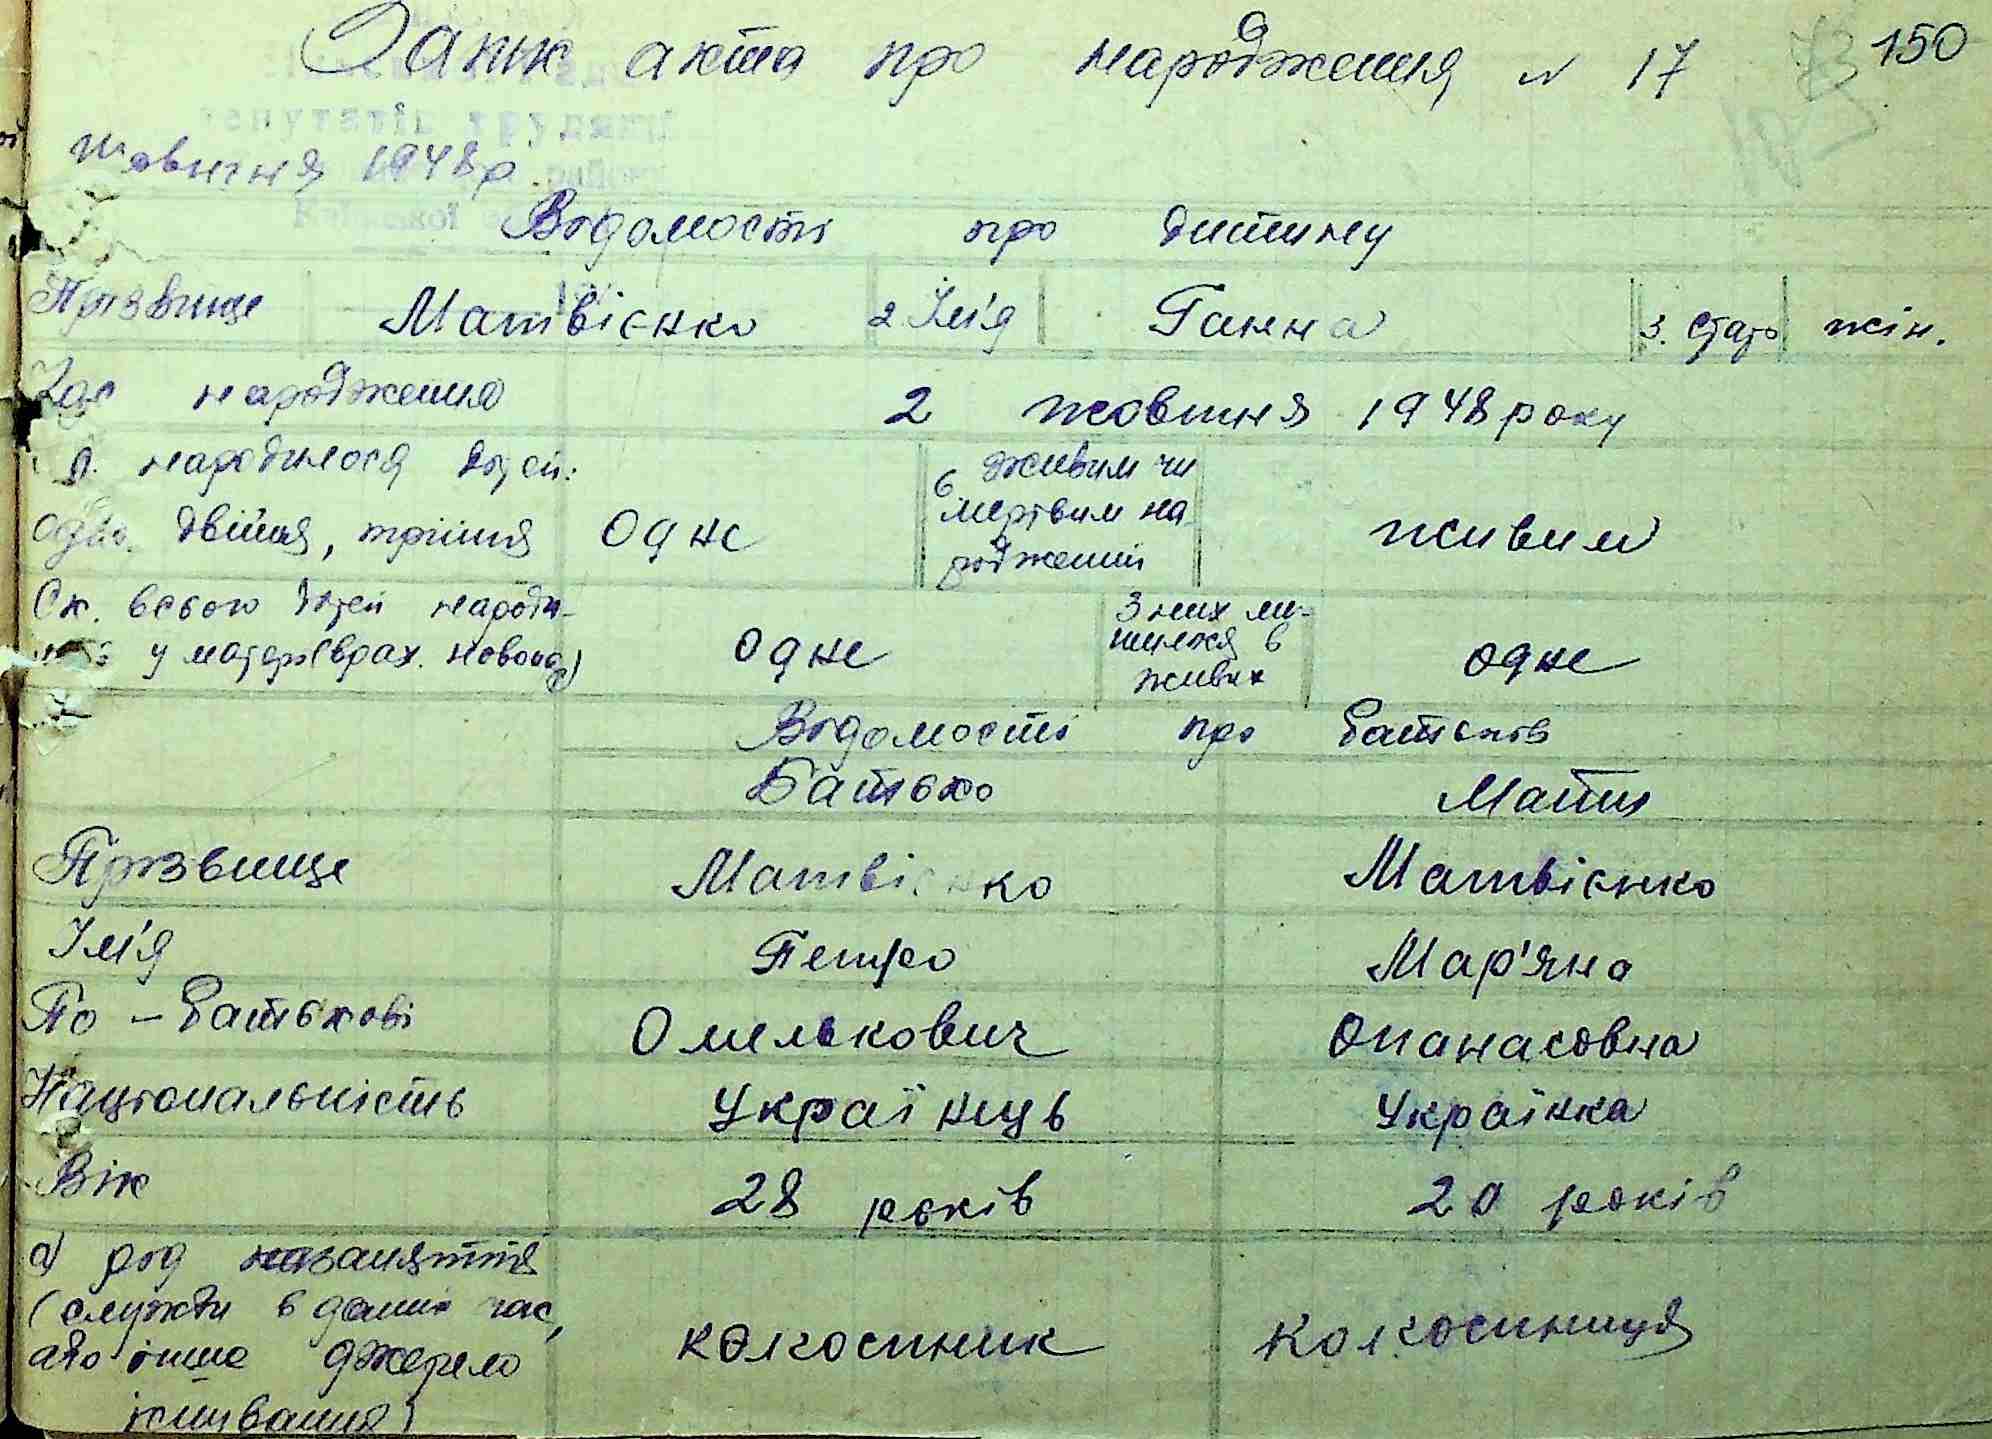 Запис акта про народження N 17 150
жовтня 1948р.
депутатів трудящ
Київської
Відомості про дитину
Прізвище Матвієнко 2 Ім'я Ганна 3. стать жін.
Час народження 2 жовтня 1948 року
народилося дітей: 6 живим чи
одно, двійня, трійня Одне мертвим на- живим
роджений
Ск. всього дітей народи- З них ли-
у матері (врах. новонар) Одне шилося в одне
живих
Відомості про батьків
Батько Мати
Прізвище Матвієнко Матвієнко
Ім'я Петро Мар'яна
По-батькові Омелькович Опанасовна
Національність Українець Українка
Вік 28 років 20 років
а) рід заняття
(служби в даний час,
або інше джерело колгоспник колгоспниця
існування)